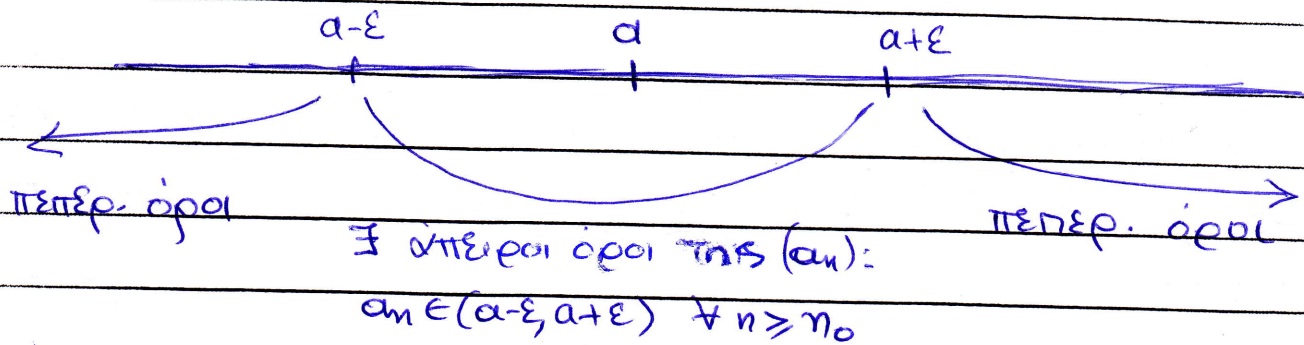 a-ε a a+ε
πεπερ. όροι πεπερ. όροι
∃ άπειροι όροι της (an):
an ∈ (a-ε, a+ε) ∀ n ≥ n₀